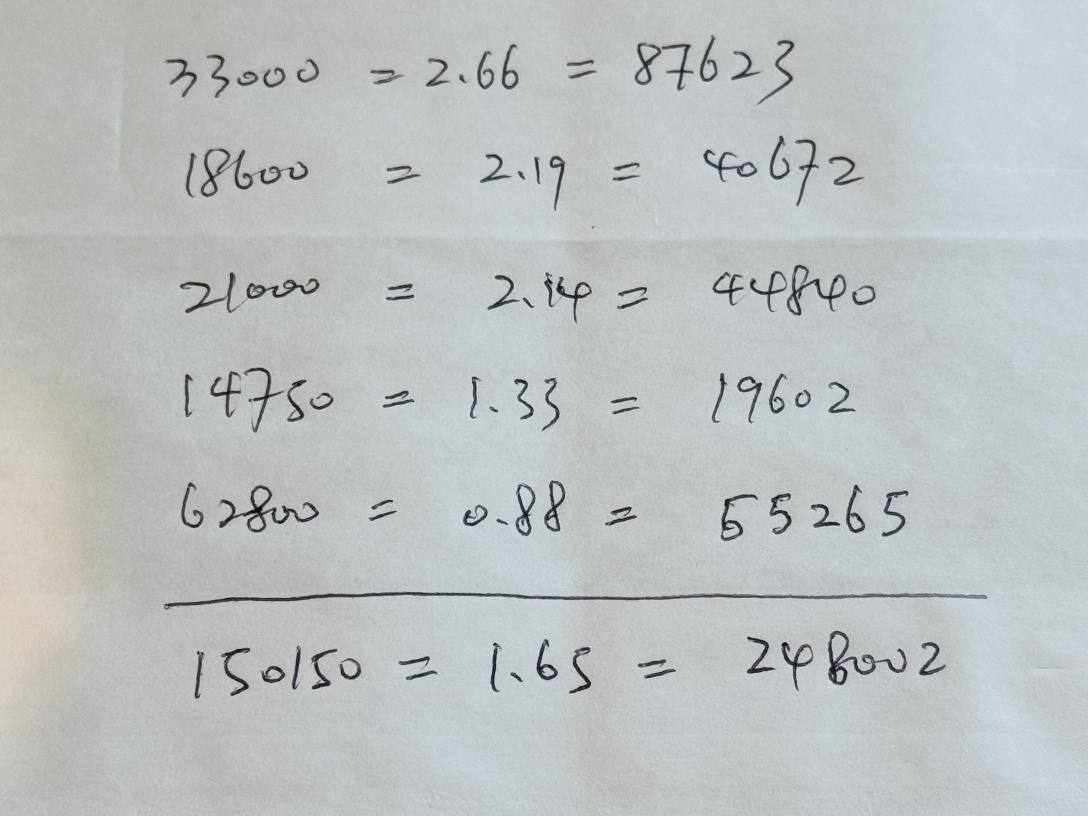 33000 = 2.66 = 87623
18600 = 2.19 = 40672
21000 = 2.14 = 44840
14750 = 1.33 = 19602
62800 = 0.88 = 55265
150150 = 1.65 = 248002